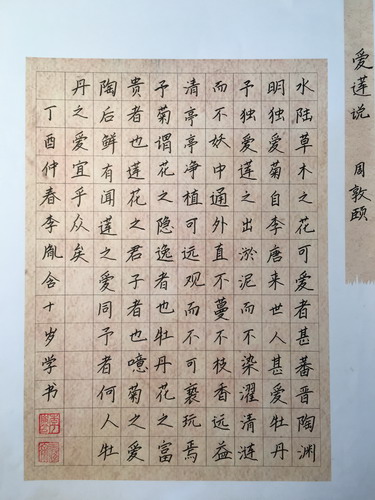 爱莲说 周敦颐
水陆草木之花可爱者甚蕃晋陶渊
明独爱菊自李唐来世人甚爱牡丹
予独爱莲之出淤泥而不染濯清涟
而不妖中通外直不蔓不枝香远益
清亭亭净植可远观而不可亵玩焉
予菊谓花之隐逸者也牡丹花之富
贵者也莲花之君子者也噫菊之爱
陶后鲜有闻莲之爱同予者何人牡
丹之爱宜乎众矣
丁酉仲春李胤含十岁学书